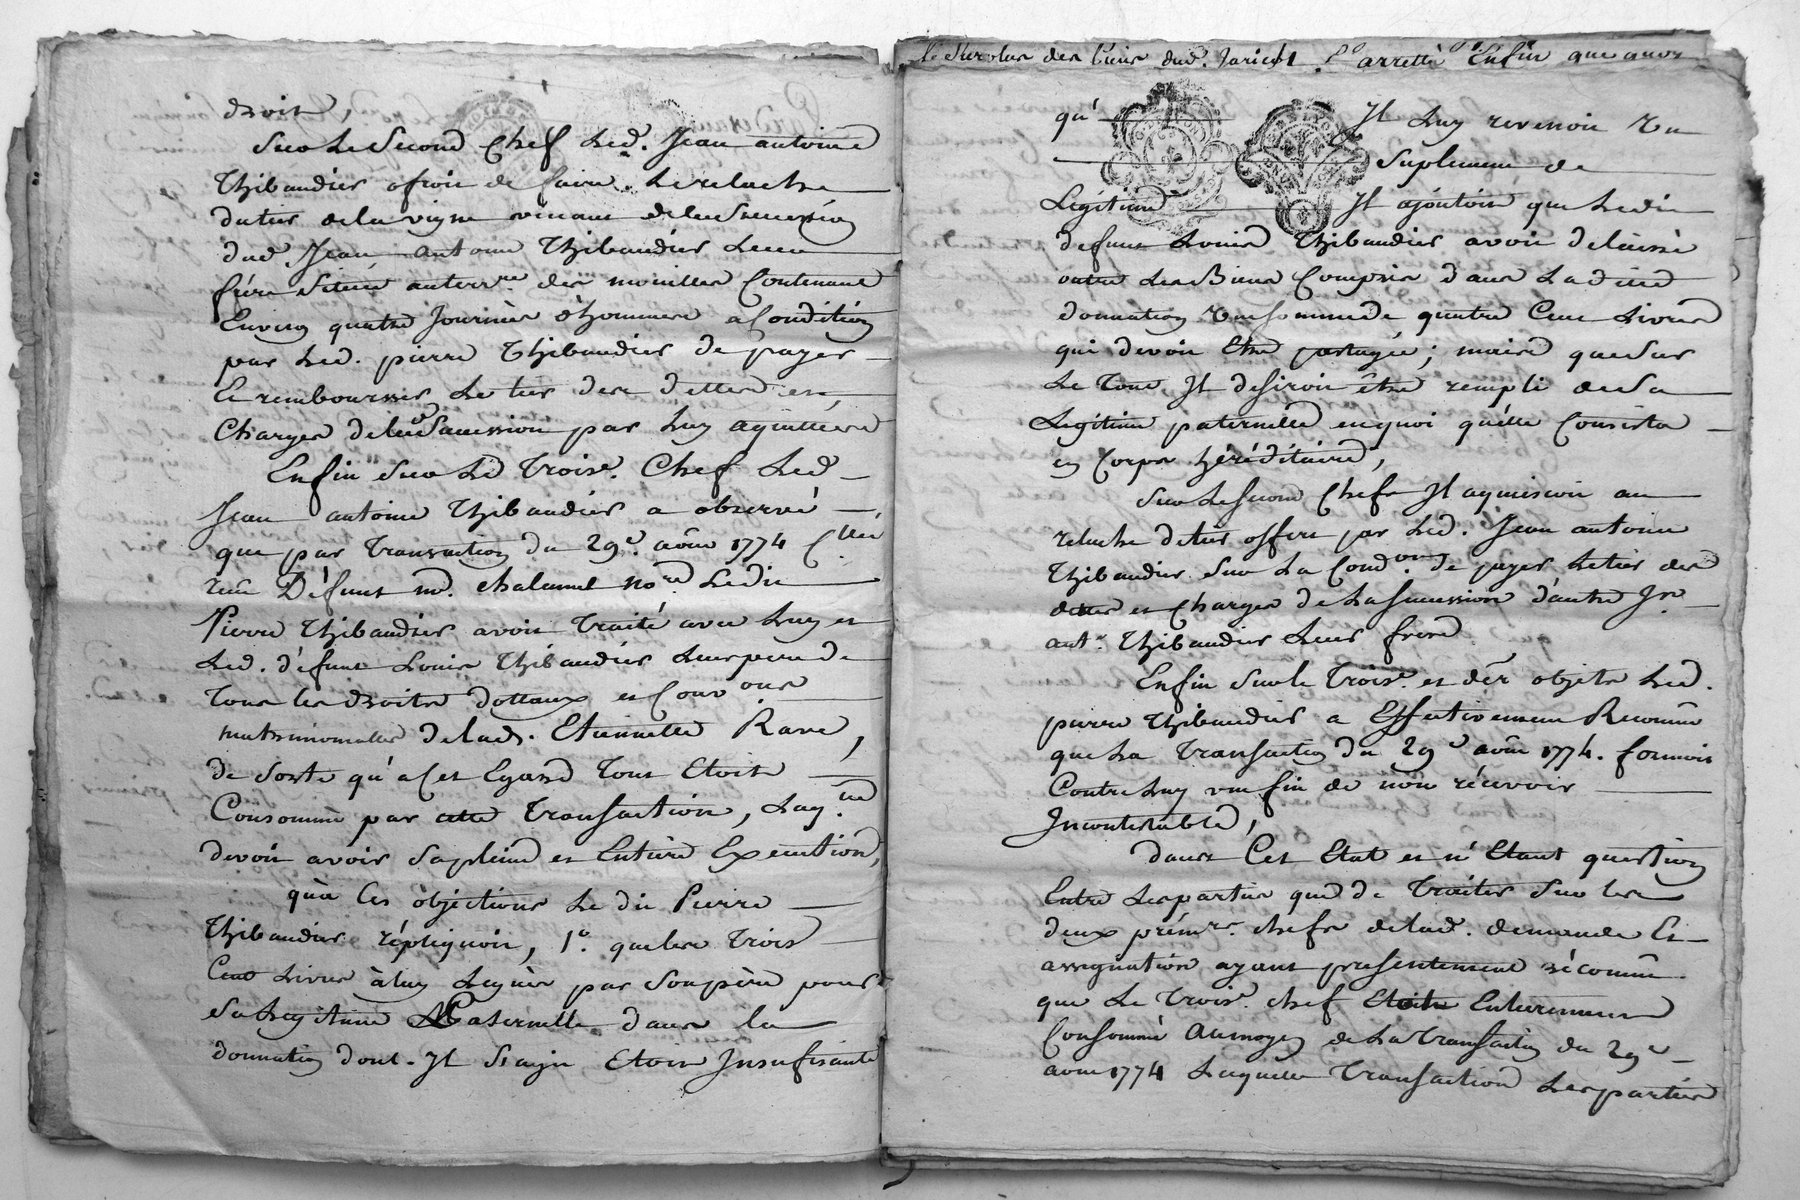 droit,
Sur Le Second Chef Led. Jean antoine
Thibaudier ofroit de faire Le relache
du tier de la vigne venant de lad Succession
dud Jean antoine Thibaudier Leur
frère Située au terr.re des moüilles Contenant
Environ quatre Journées d'hommes a Condition
par Led. pierre Thibaudier de payer
Et rembourser Le tier des dettes et
Charges de lad Succession par Luy aquittées
Enfin Sur Le Trois.e Chef Led
Jean antoine Thibaudier a observé
que par Transaction du 29.e aôut 1774
reçue Défunt m. chalamel no.re Ledit
Pierre Thibaudier avoit Traité avec Luy et
Led. défunt Louis Thibaudier Leur pere de
Tous les droits dottaux et
matrimonialles de lad. Etiennette Rave,
de Sorte qu'a Cet Egard Tout Etoit
Consommé par cette Transaction, Laq.lle
devoit avoir Sa pleine et Entiere Execution,
qu'a Ces objections Le dit Pierre
Thibaudier répliquoit, 1.° que les Trois
Cent Livres à luy Legués par Son père pour
Sa Legitime Paternelle dans la
donnation dont Il S'agit Etoit Insufisante
Le Surplus des biens dud. 2° arretté Enfin que
qu' Il Luy revenoit Un
Suplement de
Légitime Il ajoutoit que Ledit
defunt Louis Thibaudier avoit delaissé
outre Les Biens Compris dans La ditte
donnation Une Somme de quatre Cent Livres
qui devoit Etre partagée; mais que Sur
Le Tout Il desiroit être rempli de Sa
Legitime paternelle en quoi qu'elle Consista
en Corps héréditaires,
Sur Le Second Chef Il aquiesçoit au
relache du tier offert par Led. Jean antoine
Thibaudier Sur La Cond.on de payer Le tier des
dettes et Charges de La Succession d'autre Jn
ant.e Thibaudier Leur frere
Enfin Sur le Trois.e et der objets Led.
pierre Thibaudier a Effectivement Reconnu
que La Transaction du 29.e aôut 1774. formoit
Contre Luy une fin de non récevoir
Incontestable,
dans Cet Etat et n'Etant question
Entre Les parties que de Traiter Sur les
deux prémrs. chefs de lad. demande Et
assignation ayant presentement réconnu
que Le Trois.e chef Etoit Entierement
Consommé Au moyen de La Transaction du 29.e
aout 1774 Laquelle Transaction Les parties